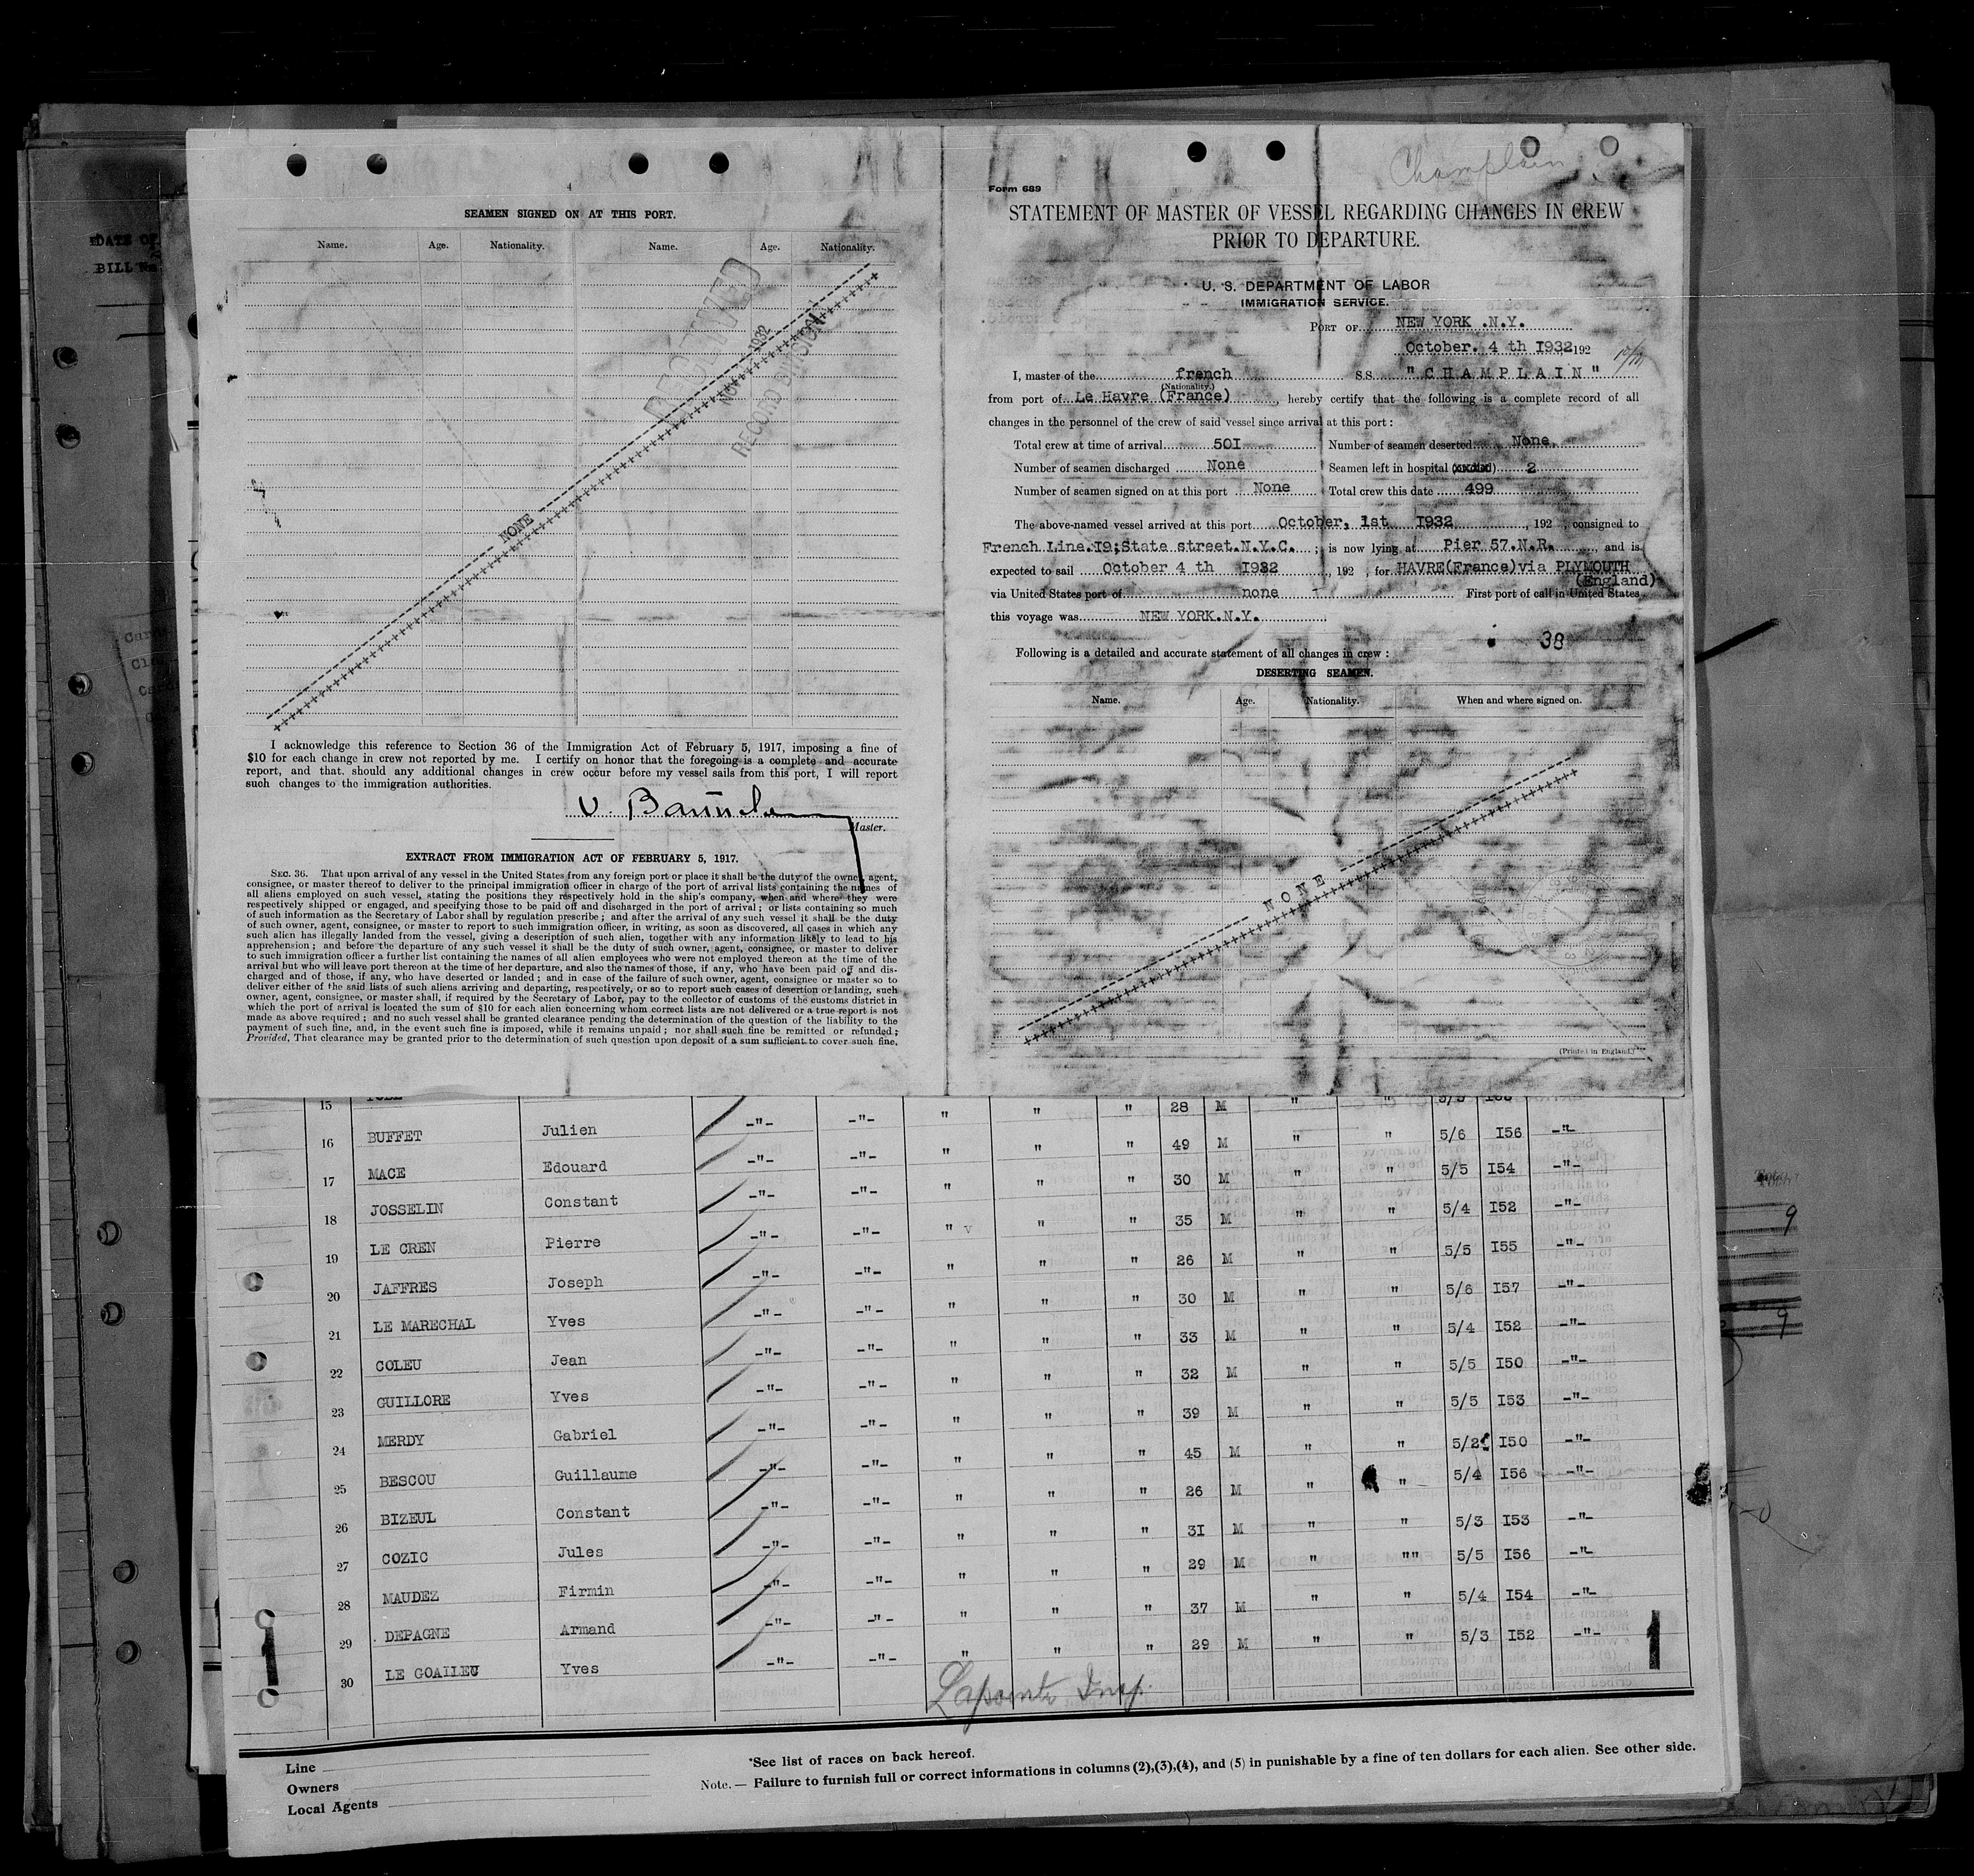 DATE OF
BILL No
SEAMEN SIGNED ON AT THIS PORT.
Name. Age. Nationality. Name. Age. Nationality.
RECEIVED
NOV 1932
RECORD DIVISION
NONE
I acknowledge this reference to Section 36 of the Immigration Act of February 5, 1917, imposing a fine of
$10 for each change in crew not reported by me. I certify on honor that the foregoing is a complete and accurate
report, and that. should any additional changes in crew occur before my vessel sails from this port, I will report
such changes to the immigration authorities.
Master.
EXTRACT FROM IMMIGRATION ACT OF FEBRUARY 5, 1917.
SEC. 36. That upon arrival of any vessel in the United States from any foreign port or place it shall be the duty of the owner, agent,
consignee, or master thereof to deliver to the principal immigration officer in charge of the port of arrival lists containing the names of
all aliens employed on such vessel, stating the positions they respectively hold in the ship's company, when and where they were
respectively shipped or engaged, and specifying those to be paid off and discharged in the port of arrival; or lists containing so much
of such information as the Secretary of Labor shall by regulation prescribe; and after the arrival of any such vessel it shall be the duty
of such owner, agent, consignee, or master to report to such immigration officer, in writing, as soon as discovered, all cases in which any
such alien has illegally landed from the vessel, giving a description of such alien, together with any information likely to lead to his
apprehension; and before the departure of any such vessel it shall be the duty of such owner, agent, consignee, or master to deliver
to such immigration officer a further list containing the names of all alien employees who were not employed thereon at the time of the
arrival but who will leave port thereon at the time of her departure, and also the names of those, if any, who have been paid off and dis-
charged and of those, if any, who have deserted or landed; and in case of the failure of such owner, agent, consignee or master so to
deliver either of the said lists of such aliens arriving and departing, respectively, or so to report such cases of desertion or landing, such
owner, agent, consignee, or master shall, if required by the Secretary of Labor, pay to the collector of customs of the customs district in
which the port of arrival is located the sum of $10 for each alien concerning whom correct lists are not delivered or a true report is not
made as above required; and no such vessel shall be granted clearance pending the determination of the question of the liability to the
payment of such fine, and, in the event such fine is imposed, while it remains unpaid; nor shall such fine be remitted or refunded;
Provided, That clearance may be granted prior to the determination of such question upon deposit of a sum sufficient to cover such fine.
Champlain
Form 689
STATEMENT OF MASTER OF VESSEL REGARDING CHANGES IN CREW
PRIOR TO DEPARTURE.
U. S. DEPARTMENT OF LABOR
IMMIGRATION SERVICE.
PORT OF NEW YORK .N.Y.
October. 4 th I932 192
I, master of the french S.S. "CHAMPLAIN"
(Nationality.)
from port of Le Havre (France), hereby certify that the following is a complete record of all
changes in the personnel of the crew of said vessel since arrival at this port:
Total crew at time of arrival 50I Number of seamen deserted None.
Number of seamen discharged None Seamen left in hospital 2
Number of seamen signed on at this port None Total crew this date 499
The above-named vessel arrived at this port October, 1st I932, 192 , consigned to
French Line.I9;State street.N.Y.C. ; is now lying at Pier 57.N.R. , and is
expected to sail October 4 th I932, 192 , for HAVRE(France)via PLYMOUTH
(England)
via United States port of none First port of call in United States
this voyage was NEW YORK.N.Y.
38
Following is a detailed and accurate statement of all changes in crew:
DESERTING SEAMEN.
Name. Age. Nationality. When and where signed on.
NONE
(Printed in England.)
15 " " " 28 M " " 5/5
16 BUFFET Julien -"- -"- " " " 49 M " " 5/6 I56 -"-
17 MACE Edouard -"- -"- " " " 30 M " " 5/5 I54 -"-
18 JOSSELIN Constant -"- -"- " v " " 35 M " " 5/4 I52 -"-
19 LE CREN Pierre -"- -"- " " " 26 M " " 5/5 I55 -"-
20 JAFFRES Joseph -"- -"- " " " 30 M " " 5/6 I57 -"-
21 LE MARECHAL Yves -"- -"- " " " 33 M " " 5/4 I52 -"-
22 COLEU Jean -"- -"- " " " 32 M " " 5/5 I50 -"-
23 GUILLORE Yves -"- -"- " " " 39 M " " 5/5 I53 -"-
24 MERDY Gabriel -"- -"- " " " 45 M " " 5/2 I50 -"-
25 BESCOU Guillaume -"- -"- " " " 26 M " " 5/4 I56 -"-
26 BIZEUL Constant -"- -"- " " " 3I M " " 5/3 I53 -"-
27 COZIC Jules -"- -"- " " " 29 M " "" 5/5 I56 -"-
28 MAUDEZ Firmin -"- -"- " " " 37 M " " 5/4 I54 -"-
29 DEPAGNE Armand -"- -"- " " " 29 M " " 5/3 I52 -"-
30 LE GOAILEU Yves -"- -"-
1 1
Lapointe Insp.
Line
Owners
Local Agents
*See list of races on back hereof.
Note. — Failure to furnish full or correct informations in columns (2),(3),(4), and (5) in punishable by a fine of ten dollars for each alien. See other side.
9
9